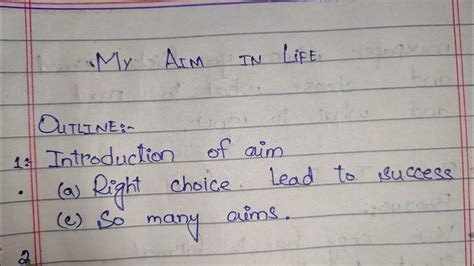 My AIM IN LIFE
OUTLINE:-
1:- Introduction of aim
(a) Right choice lead to success
(c) So many aims.
2